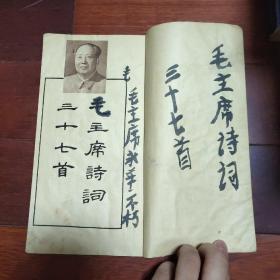 毛主席詩詞
三十七首
毛
毛主席永垂不朽
毛主席诗词
三十七首